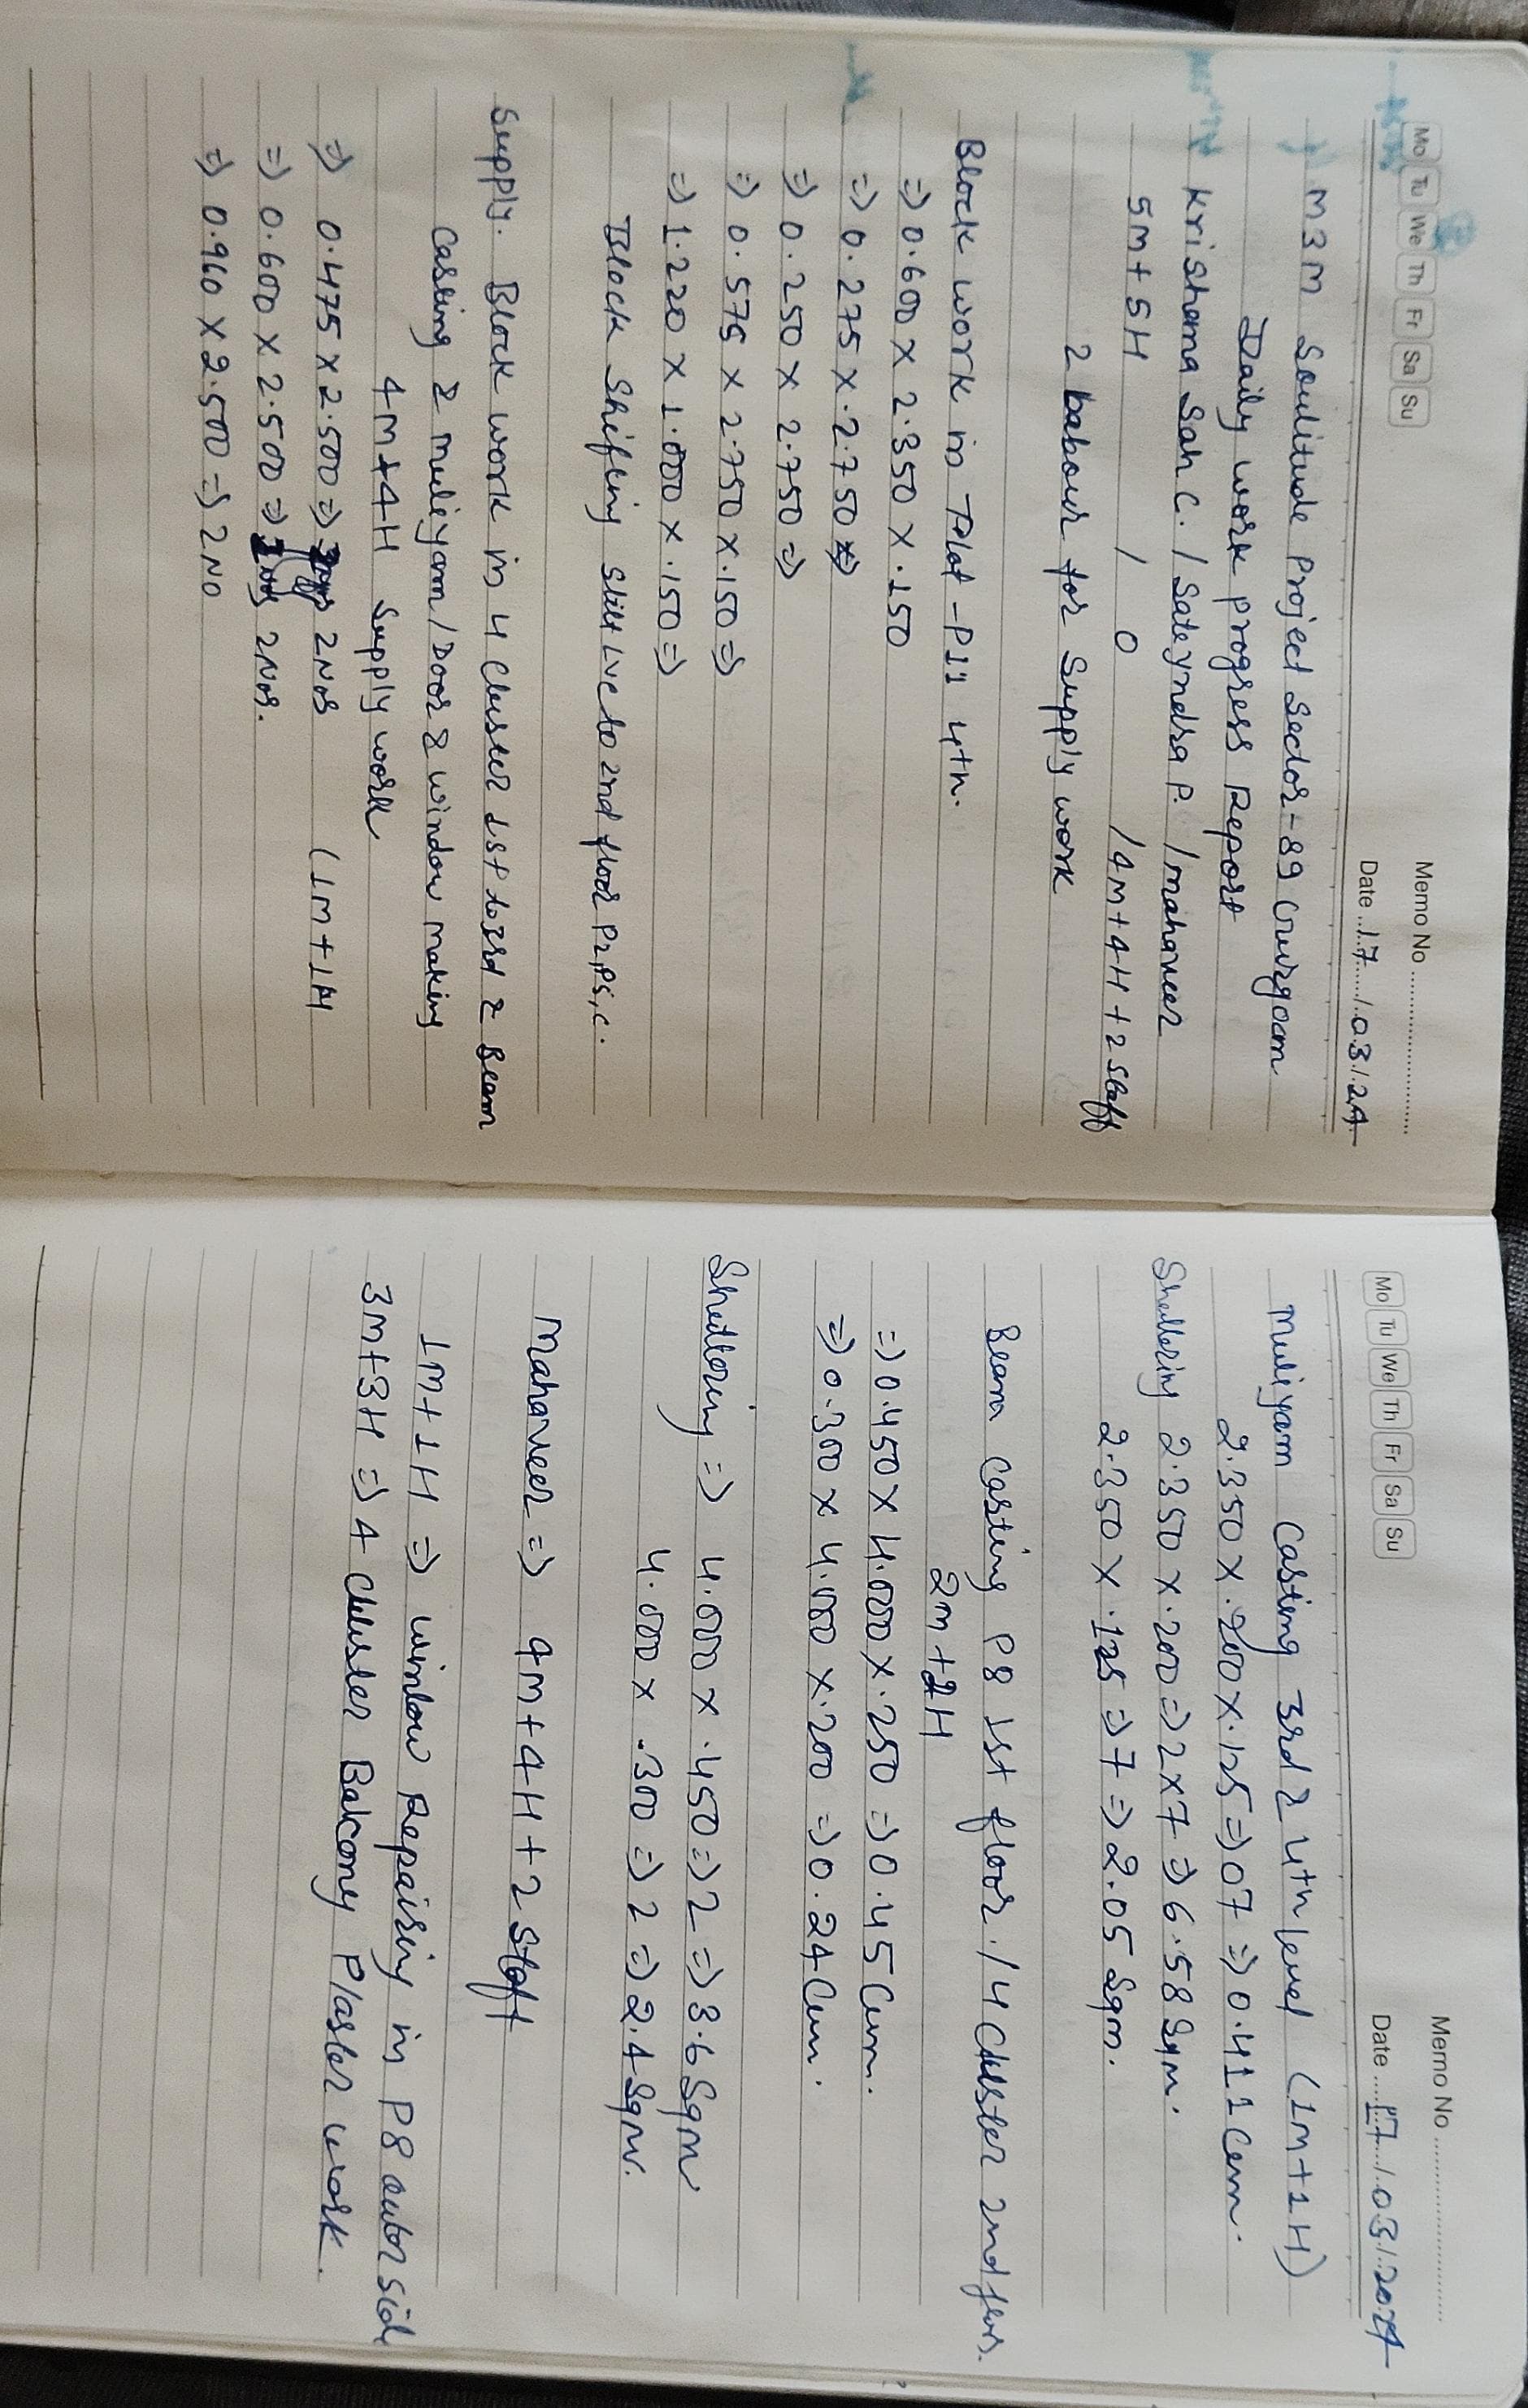 Mo Tu We Th Fr Sa Su
Memo No
Date 17/03/24
M3M Soulitude Project Sector-89 Gurgoam
Daily work progress Report
Krishana Sah C. / Sateyndra P. / Mahaveer
5M+5H / 0 / 4M+4H+2 Staff
2 babour for Supply work
Block work in Plot-P11 4th.
=> 0.600 x 2.350 x .150
=> 0.275 x .2.750 =>
=> 0.250 x 2.750 =>
=> 0.575 x 2.750 x .150 =>
=> 1.220 x 1.000 x .150 =>
Block Shifting Stilt Lvl to 2nd floor P2, P5, C.
Supply. Block work in 4 Cluster 1st to 3rd & Beam
Casting & Muliyam / Door & window Making
4M+4H Supply work
=> 0.475 x 2.500 => 2Nos (1M+1H
=> 0.600 x 2.500 => 2Nos.
=> 0.960 x 2.500 => 2No
Mo Tu We Th Fr Sa Su
Memo No
Date 17/03/2024
Muliyam Casting 3rd & 4th level (1M+1H)
2.350 x .200 x .125 => 07 => 0.411 Cum.
Shuttering 2.350 x .200 => 2x7 => 6.58 Sqm.
2.350 x .125 => 7 => 2.05 Sqm.
Beam Casting P8 1st floor. / 4 Cluster 2nd floor.
2M+2H
=> 0.450 x 4.000 x .250 => 0.45 Cum.
=> 0.300 x 4.000 x .200 => 0.24 Cum.
Shuttering => 4.000 x .450 => 2 => 3.6 Sqm
4.000 x .300 => 2 => 2.4 Sqm.
Mahaveer => 4M+4H+2 Staff
1M+1H => window Repairing in P8 outor side
3M+3H => 4 Cluster Balcony Plaster work.